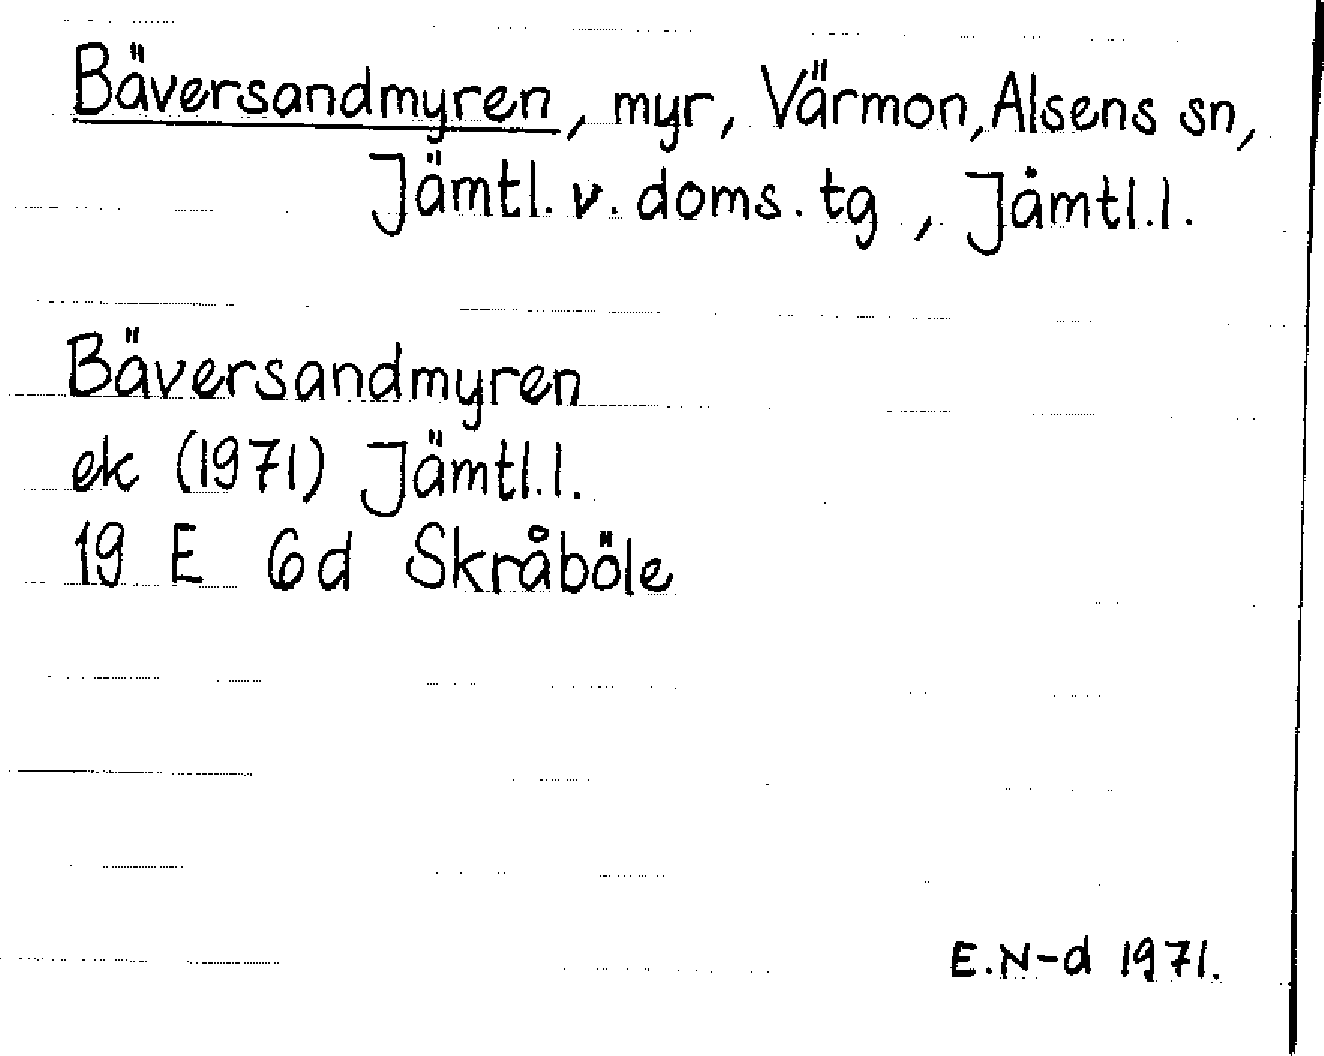 Bäversandmyren, myr, Värmon, Alsens sn,
Jämtl. v. doms. tg, Jämtl.l.
Bäversandmyren
ek (1971) Jämtl.l.
19 E 6d Skråböle
E.N-d 1971.